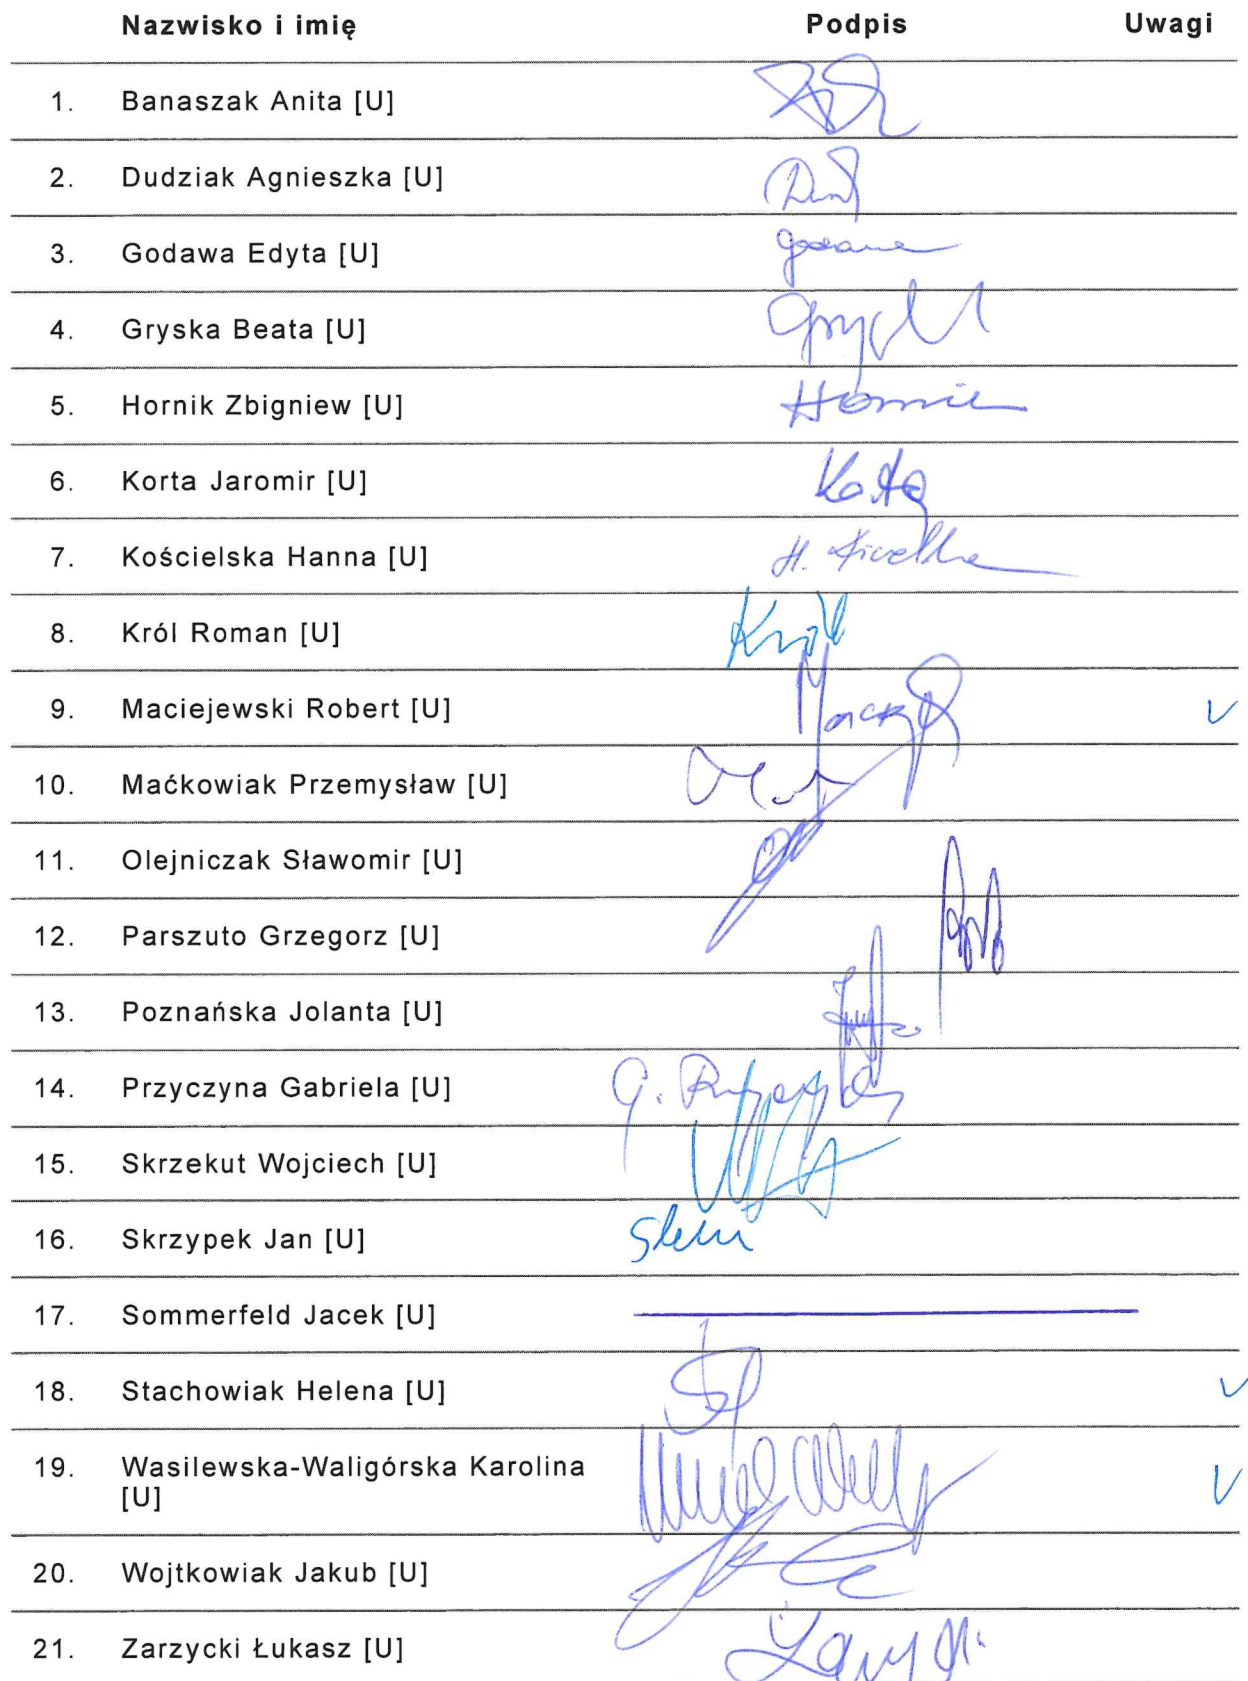 Nazwisko i imię Podpis Uwagi
1. Banaszak Anita [U]
2. Dudziak Agnieszka [U]
3. Godawa Edyta [U]
4. Gryska Beata [U]
5. Hornik Zbigniew [U]
6. Korta Jaromir [U] Korta
7. Kościelska Hanna [U] H.
8. Król Roman [U] Król
9. Maciejewski Robert [U] V
10. Maćkowiak Przemysław [U]
11. Olejniczak Sławomir [U]
12. Parszuto Grzegorz [U]
13. Poznańska Jolanta [U]
14. Przyczyna Gabriela [U] G.
15. Skrzekut Wojciech [U]
16. Skrzypek Jan [U]
17. Sommerfeld Jacek [U]
18. Stachowiak Helena [U] V
19. Wasilewska-Waligórska Karolina V
[U]
20. Wojtkowiak Jakub [U]
21. Zarzycki Łukasz [U]